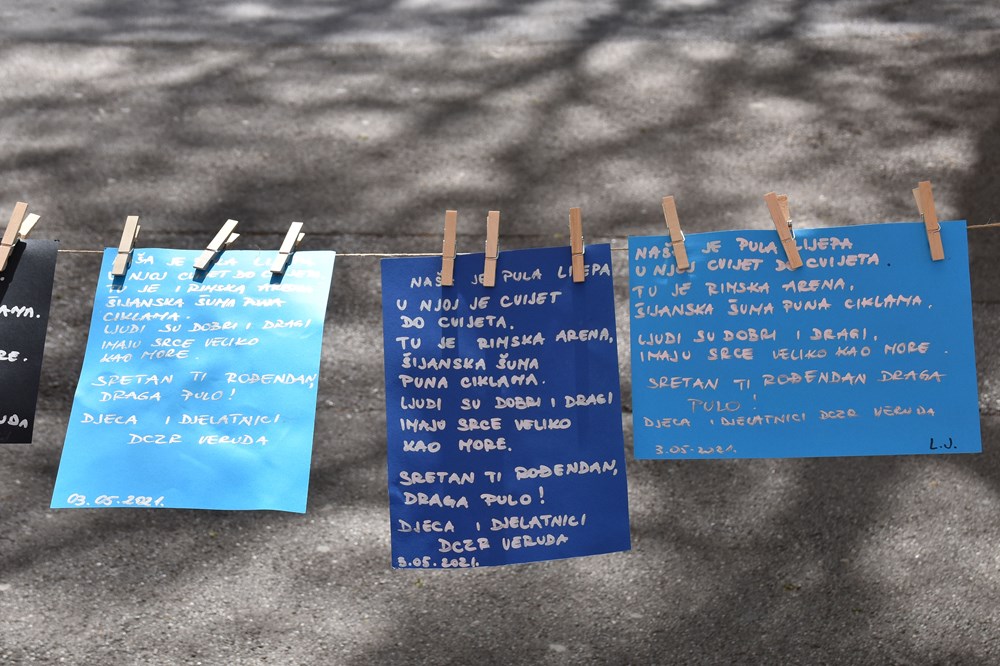 AMA.
RE.
UDA
ŠA JE PULA LIJEPA
U NJOJ CVIJET DO CVIJETA
TU JE I RIMSKA ARENA
ŠIJANSKA ŠUMA PUNA
CIKLAMA.
LJUDI SU DOBRI I DRAGI
IMAJU SRCE VELIKO
KAO MORE.
SRETAN TI ROĐENDAN,
DRAGA PULO!
DJECA I DJELATNICI
DCZR VERUDA
03.05.2021.
NAŠA JE PULA LIJEPA
U NJOJ JE CVIJET
DO CVIJETA.
TU JE RIMSKA ARENA,
ŠIJANSKA ŠUMA
PUNA CIKLAMA.
LJUDI SU DOBRI I DRAGI
IMAJU SRCE VELIKO
KAO MORE.
SRETAN TI ROĐENDAN,
DRAGA PULO!
DJECA I DJELATNICI
DCZR VERUDA
3.05.2021.
NAŠA JE PULA LIJEPA
U NJOJ CVIJET DO CVIJETA.
TU JE RIMSKA ARENA,
ŠIJANSKA ŠUMA PUNA CIKLAMA.
LJUDI SU DOBRI I DRAGI,
IMAJU SRCE VELIKO KAO MORE.
SRETAN TI ROĐENDAN DRAGA
PULO!
DJECA I DJELATNICI DCZR VERUDA
3.05.2021.
L.J.